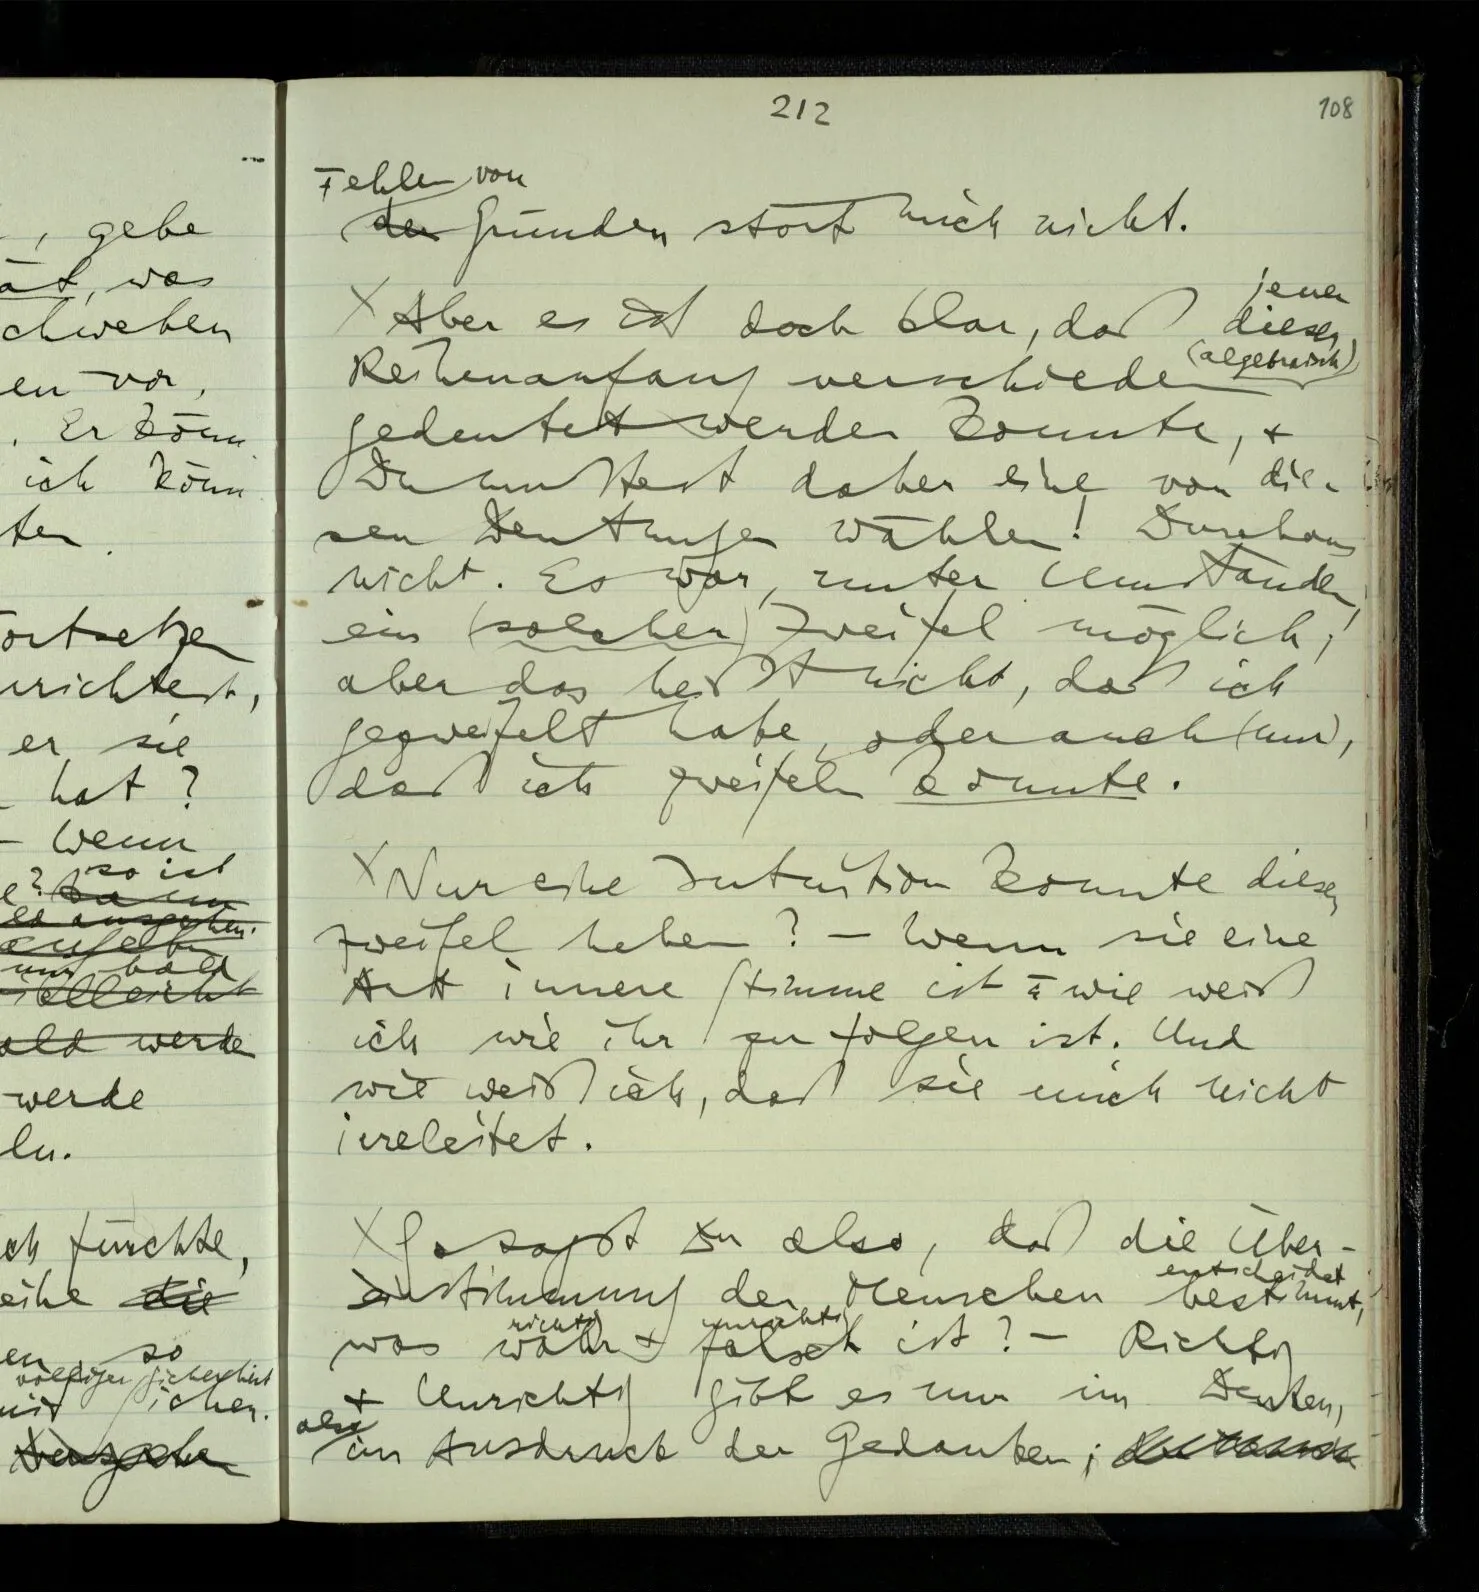 212
108
Fehlen von
der Gründen stört mich nicht.
jener
× Aber es ist doch klar, daß dieser
(algebraisch)
Reihenanfang verschieden
gedeutet werden konnte, +
Du mußtest daher eine von die-
sen Deutungen wählen! Durchaus
nicht. Es war, unter Umständen,
ein (solcher) Zweifel möglich;
aber das heißt nicht, daß ich
gezweifelt habe, oder auch (nur),
daß ich zweifeln konnte.
× Nur eine Intuition konnte diesen
Zweifel heben? – Wenn sie eine
Art innere Stimme ist – wie weiß
ich wie ihr zu folgen ist. Und
wie weiß ich, daß sie mich nicht
irreleitet.
× So sagst Du also, daß die Über-
entscheidet
einstimmung der Menschen bestimmt,
richtig unrichtig
was wahr + falsch ist? – Richtig
+ Unrichtig gibt es nur im Denken,
also
im Ausdruck der Gedanken;
, gebe
ät, was
chweben
en vor,
. Er könn
ich könn
ten.
ortsetzen
nrichtest,
er sie
hat?
– Wenn
so ist
e?
bald
vielleicht
ald werde
werde
ln.
ch fürchte,
eihe die
en so
völliger Sicherheit
mit sicher.